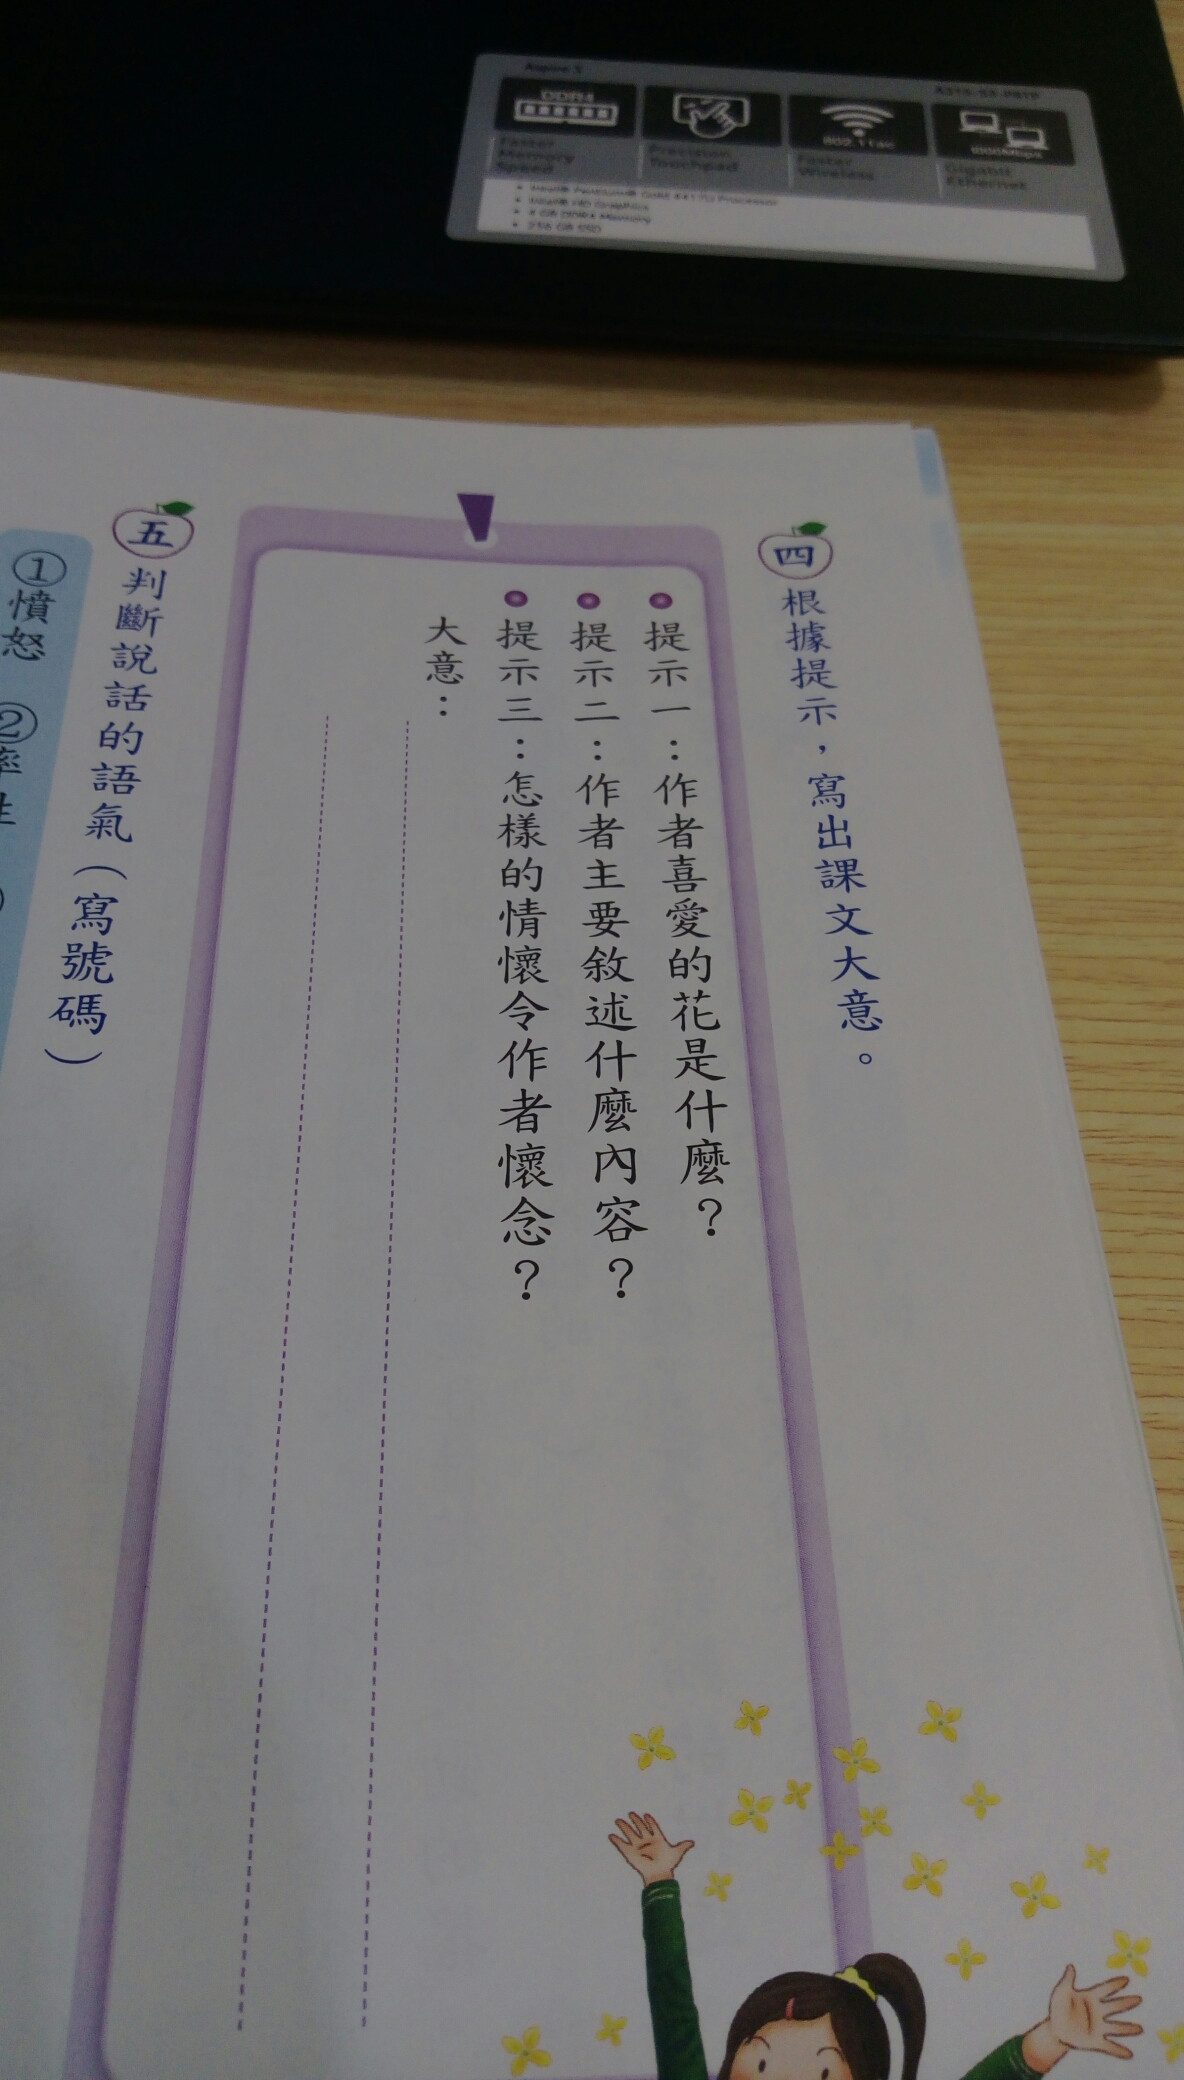 Aspire 3
A315-53-P8TP
DDR4
802.11ac
1000Mbps
Faster
Memory
Speed
Precision
Touchpad
Faster
Wireless
Gigabit
Ethernet
Intel® HD Graphics
4 GB DDR4 Memory
256 GB SSD
四
根據提示，寫出課文大意。
提示一：作者喜愛的花是什麼？
提示二：作者主要敘述什麼內容？
提示三：怎樣的情懷令作者懷念？
大意：
五
判斷說話的語氣（寫號碼）
①憤怒 ②